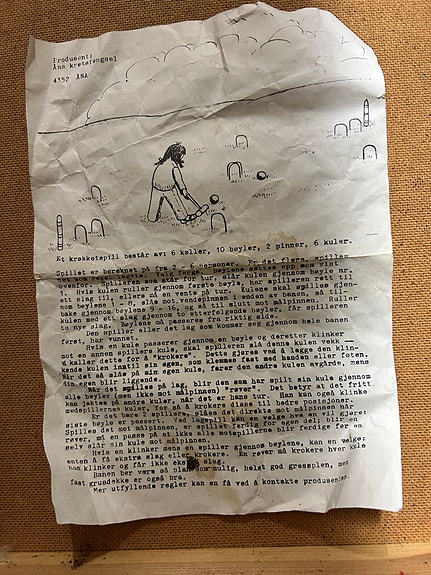 Produsent:
Åna kretsfengsel
4352 ÅNA
Et krokketspill består av: 6 køller, 10 bøyler, 2 pinner, 6 kuler.
Spillet er beregnet på fra 2 - 6 personer. Er det flere, spilles
det som lagvis, med farge. Bøylene settes opp som vist
ovenfor. Spilleren som står for tur, slår kulen gjennom bøyle nr.
1. Hvis kulen ruller gjennom første bøyle, har spilleren rett til
ett slag til, ellers må en vente på tur. Kulene skal spilles gjen-
nom bøylene 1 - 8, slås mot vendepinnen i enden av banen, så til-
bake gjennom bøylene 9 - 16, og så til slutt mot målpinnen. Ruller
kulen med ett slag gjennom to etterfølgende bøyler, får spilleren
to nye slag. Bøylene må passeres fra riktig side.
Den spiller eller det lag som kommer seg gjennom hele banen
først, har vunnet.
Hvis en kule passerer gjennom en bøyle og deretter klinker
mot en annen spillers kule, skal spilleren slå denne kulen vekk --
vi kaller dette for å "krokere". Dette gjøres ved å legge den klin-
kende kulen inntil sin egen, som klemmes fast med handen eller foten.
Når en så slår på sin egen kule, farer den andre kulen avgårde, mens
ens egen blir liggende.
Når det spilles på lag, blir den som har spilt sin kule gjennom
alle bøyler (men ikke mot målpinnen) "røver". Det betyr at det fritt
kan jaktes på andre kuler, når det er hans tur. Han kan også klinke
medspillernes kuler, for så å krokere disse til bedre posisjoner.
Er det bare 2 spillere, slåes det direkte mot målpinnen når
siste bøyle er passert. Ved lagspill kan en velge hva en vil gjøre:
Spilles det mot målpinnen, er spillet ferdig for egen del; blir en
røver, må en passe på at ikke alle motspillerne blir ferdige før en
selv slår sin kule mot målpinnen.
Hvis en klinker mens en spiller gjennom bøylene, kan en velge:
enten å få ekstra slag eller krokere. En røver må krokere hver kule
han klinker og får ikke ekstra slag.
Banen bør være så plan som mulig, helst god gressplen, men
fast grusdekke er også bra.
Mer utfyllende regler kan en få ved å kontakte produsenten.